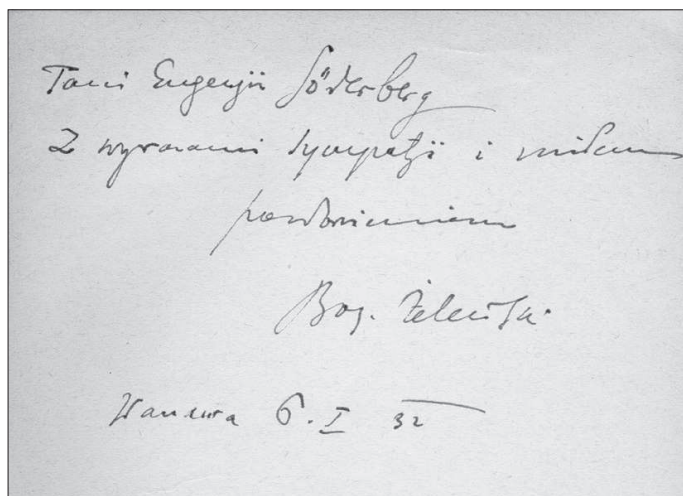 Pani Eugenji Söderberg
Z wyrazami sympatji i miłem
pozdrowieniem
Boy. Żeleński.
Warszawa 6. I 32